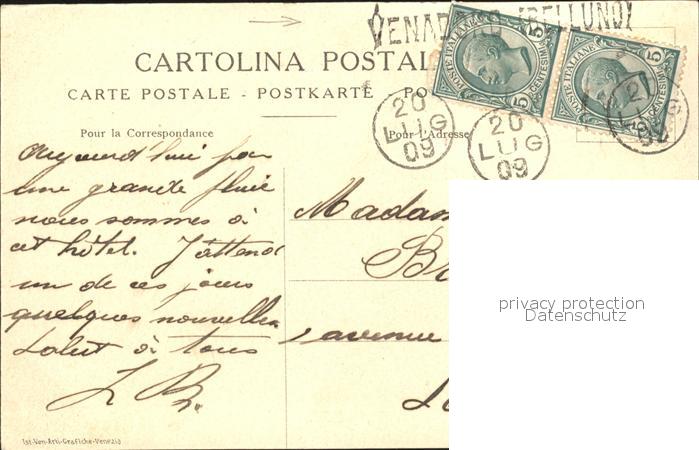 VENAD (BELLUNO)
CARTOLINA POSTAL
CARTE POSTALE - POSTKARTE - PO
POSTE ITALIANE
CENTESIMI
5
5
POSTE ITALIANE
CENTESIMI
5
5
20
LUG
09
20
LUG
09
LUG
09
Pour la Correspondance
Pour l'Adresse
Aujourd'hui par
une grande pluie
nous sommes à
cet hôtel. J'attend
un de ces jours
quelques nouvelles
Salut à tous
Madam
avenue
Ist-Ven-Arti-Grafiche-Venezia
privacy protection
Datenschutz